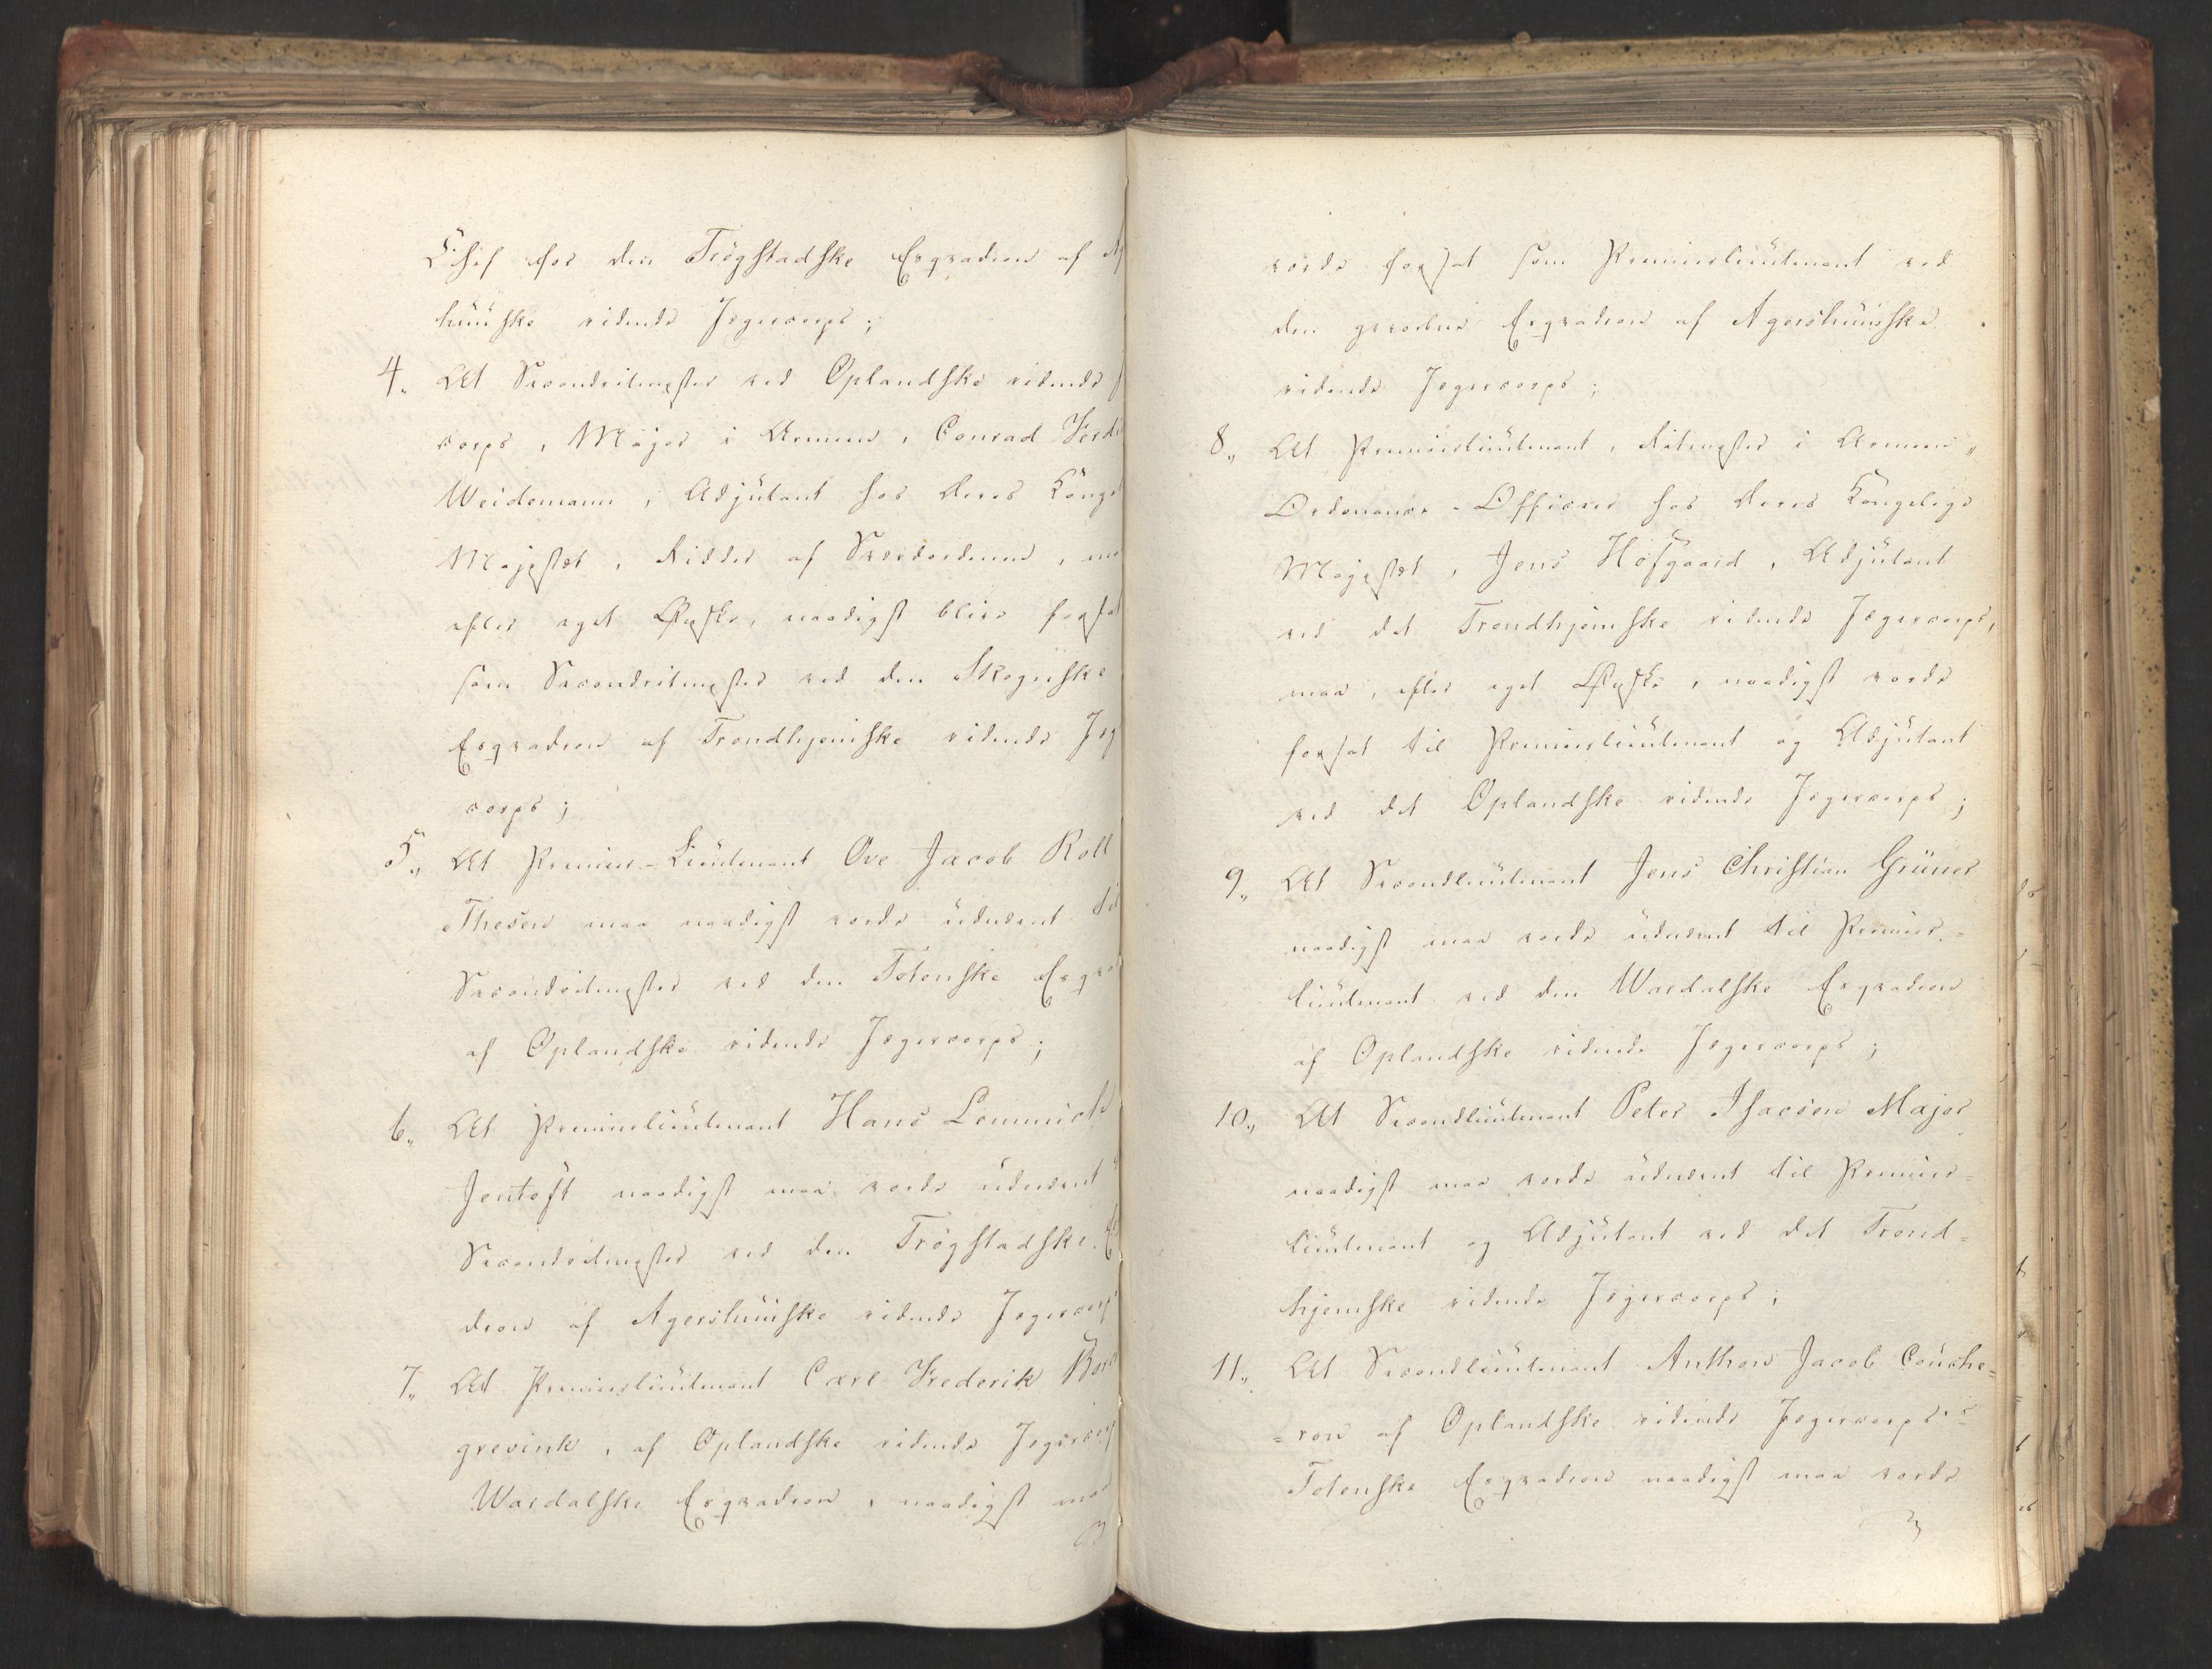 Chef for den Trögstadske Esqvadron af A
huusske ridende Jægercorps;
4. At Secondritmester ved Oplandske ridende
corps, Major i Armeen, Conrad Ferdi
Weidemann, Adjutant hos Deres Konge
Majestæt, Ridder af Sværdordenen, maa
efter eget Ønske, naadigst blive forsat
som Secondritmester ved den Skognske
Esqvadron af Trondhjemske ridende Jæg
corps;
5., At Premier-Lieutenant Ove Jacob Roll
Thesen maa naadigst vorde udnævnt til
Secondritmester ved den Totenske Esqva
af Oplandske ridende Jægercorps;
6., At Premierlieutenant Hans Lemmich
Jentoft naadigst maa vorde udnævnt
Secondritmester ved den Trögstadske
dron af Agershuusske ridende Jægercorp
7., At Premierlieutenant Carl Frederik Borch
grevink, af Oplandske ridende Jægercorp
Wardalske Esqvadron, naadigst maa
vorde forsat som Premierlieutenant ved
den Esqvadron af Agershuusske
ridende Jægercorps;
8., At Premierlieutenant, Ritmester i Armeen,
Ordonance-Officeer hos Deres Kongelige
Majestæt, Jens Hofgaard, Adjutant
ved det Trondhjemske ridende Jægercorps,
maa, efter eget Ønske, naadigst vorde
forsat til Premierlieutenant og Adjutant
ved det Oplandske ridende Jægercorps;
9., At Secondlieutenant Jens Christian Grüner
naadigst maa vorde udnævnt til Premier-
lieutenant ved den Wardalske Esqvadron
af Oplandske ridende Jægercorps;
10., At Secondlieutenant Peter Isacsen Major
naadigst maa vorde udnævnt til Premier-
Lieutenant og Adjutant ved det Trond=
hjemske ridende Jægercorps;
11., At Secondlieutenant Anthon Jacob Couche=
=ron af Oplandske ridende Jægercorps's
Totenske Esqvadron naadigst maa vorde